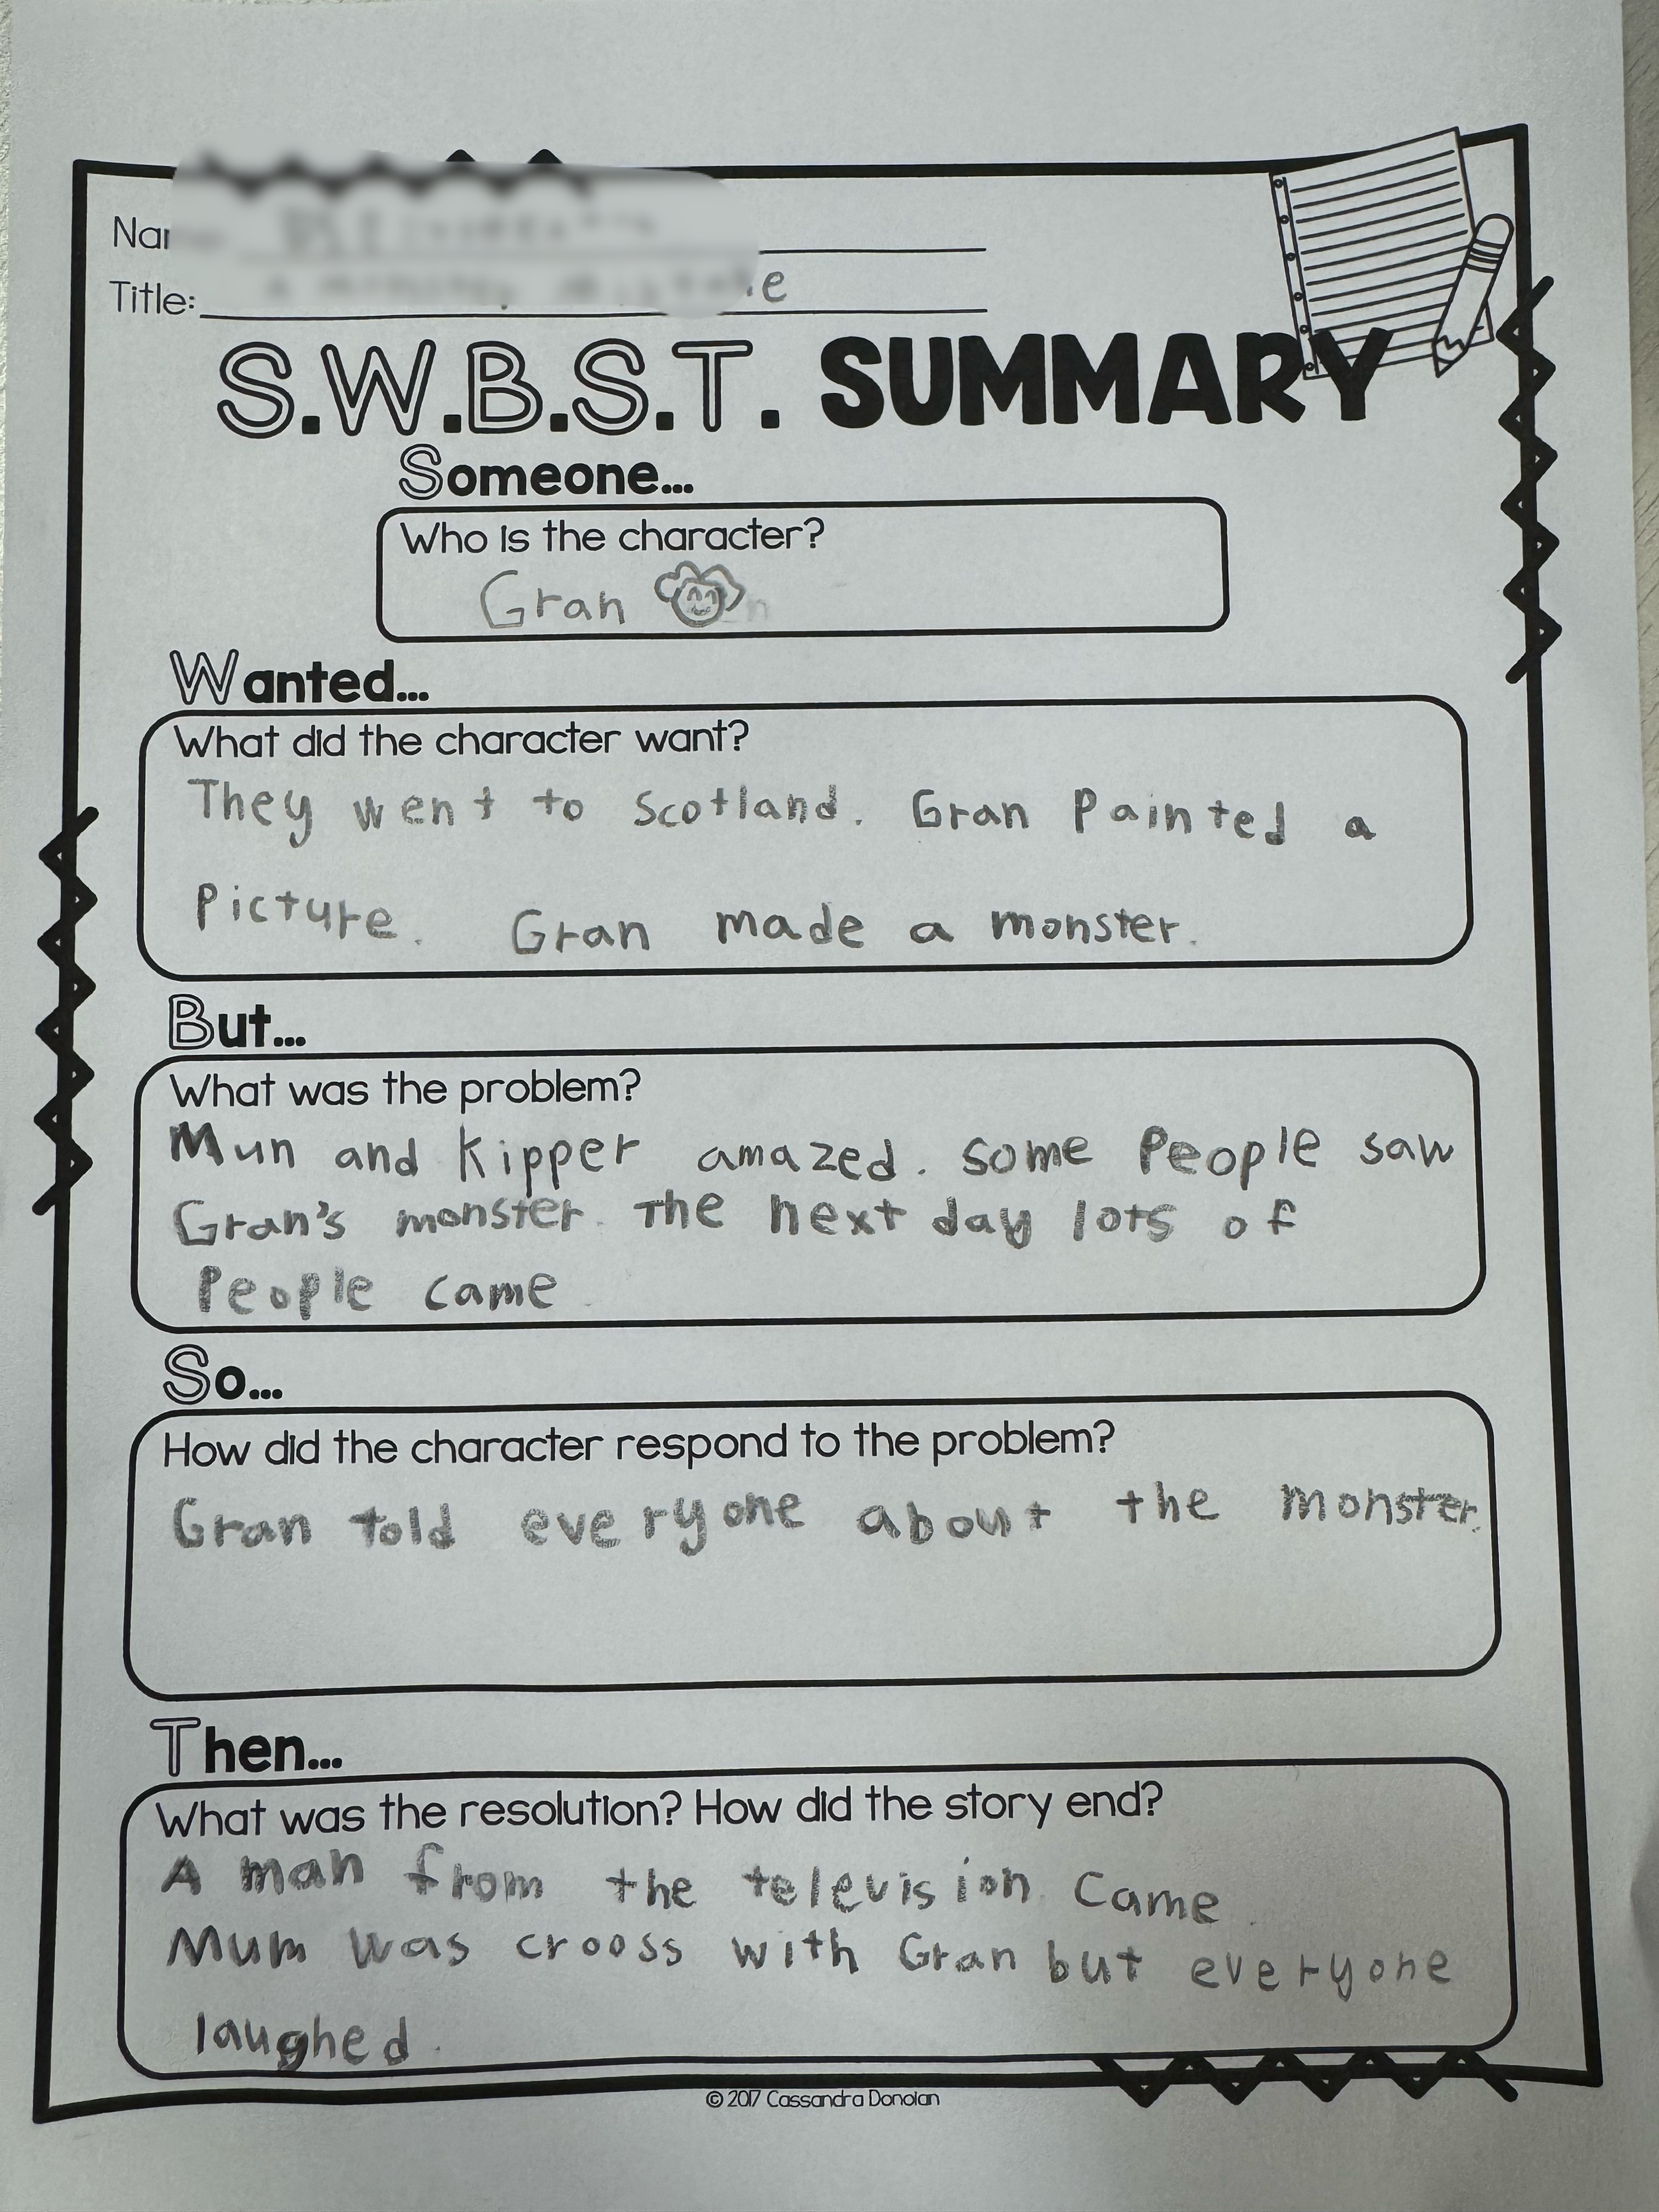 Title: e
S.W.B.S.T. SUMMARY
Someone...
Who is the character?
Gran
Wanted...
What did the character want?
They went to Scotland. Gran Painted a
Picture. Gran made a monster.
But...
What was the problem?
Mun and Kipper amazed. Some People saw
Gran's monster. The next day lots of
People came.
So...
How did the character respond to the problem?
Gran told everyone about the monster.
Then...
What was the resolution? How did the story end?
A man from the television. Came.
Mum was crooss with Gran but everyone
laughed.
© 2017 Cassandra Donolan